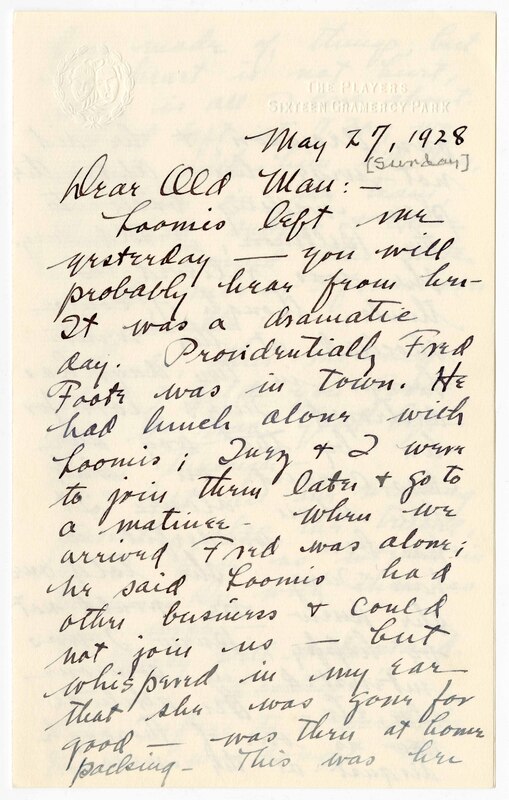 THE PLAYERS
SIXTEEN GRAMERCY PARK
May 27, 1928
[Sunday]
Dear Old Man:—
Loomis left me
yesterday — you will
probably hear from her—
It was a dramatic
day. Providentially Fred
Foote was in town. He
had lunch alone with
Loomis; Tury & I were
to join them later & go to
a matinee. When we
arrived Fred was alone;
he said Loomis had
other business & could
not join us — but
whispered in my ear
that she was gone for
good — was then at home
packing— This was her